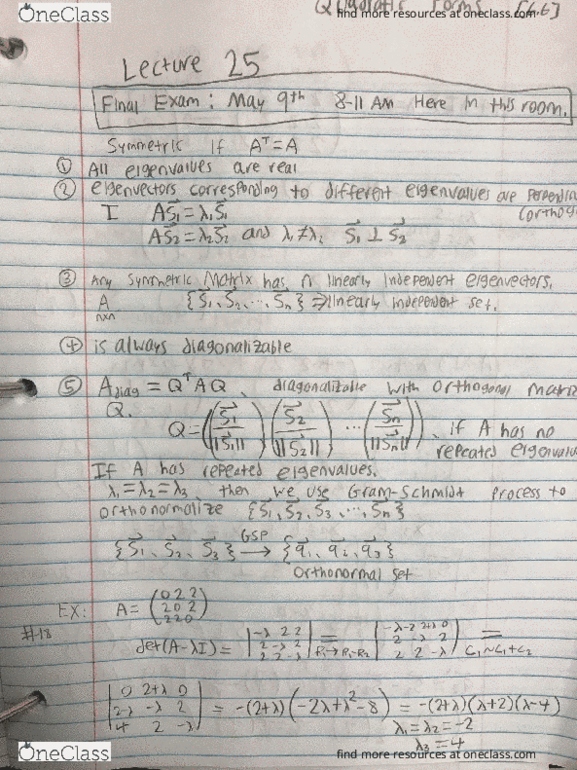 OneClass
Quadratic Forms [6.6]
find more resources at oneclass.com
Lecture 25
Final Exam: May 9th 8-11 AM Here in this room.
Symmetric if Aᵀ=A
① All eigenvalues are real
② eigenvectors corresponding to different eigenvalues are perpendic
(orthog
I AS⃗₁=λ₁S⃗₁
AS⃗₂=λ₂S⃗₂ and λ₁≠λ₂ S⃗₁ ⊥ S⃗₂
③ Any symmetric Matrix has n linearly independent eigenvectors.
A {S⃗₁, S⃗₂, ..., S⃗n} ⇒ linearly independent set.
nxn
④ is always diagonalizable
⑤ A diag = QᵀAQ, diagonalizable with orthogonal matrix
Q.
Q = ((S⃗₁/||S⃗₁||) (S⃗₂/||S⃗₂||) ... (S⃗n/||S⃗n||)), if A has no
repeated eigenvalu
If A has repeated eigenvalues.
λ₁=λ₂=λ₃, then we use Gram-Schmidt process to
orthonormalize {S⃗₁, S⃗₂, S⃗₃, ..., S⃗n}
{S⃗₁, S⃗₂, S⃗₃} GSP→ {q⃗₁, q⃗₂, q⃗₃}
orthonormal set
EX: A = (0 2 2
2 0 2
2 2 0)
#18
det(A-λI) = |-λ 2 2
2 -λ 2
2 2 -λ| = R₁→R₁-R₂ |-λ-2 2+λ 0
2 -λ 2
2 2 -λ| = C₁~C₁+C₂
|0 2+λ 0
2-λ -λ 2
4 2 -λ| = -(2+λ)(-2λ+λ²-8) = -(2+λ)(λ+2)(λ-4)
λ₁=λ₂=-2
λ₃=4
OneClass
find more resources at oneclass.com